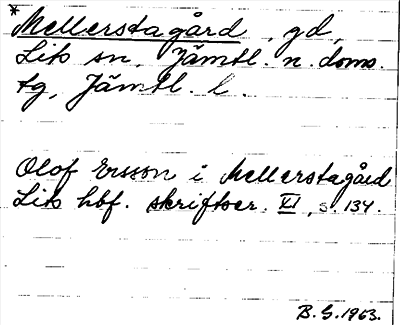 * Mellerstagård, gd,
Lits sn, Jämtl. n. doms.
tg, Jämtl. l.
Olof Ersson i Mellerstagård
Lits hbf. skriftser. VI, s. 134.
B. G. 1963.